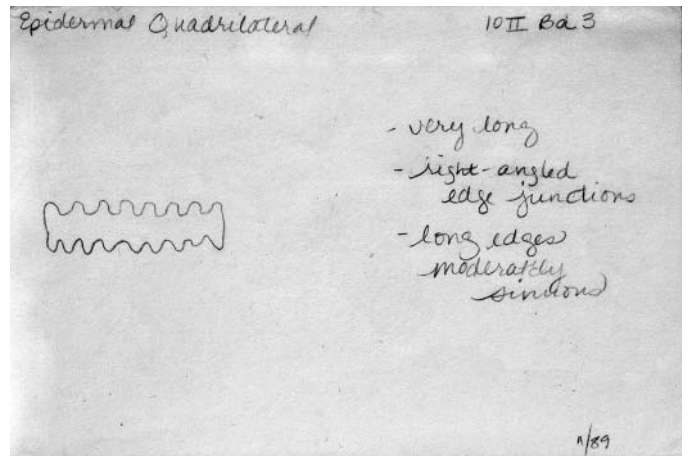 Epidermal Quadrilateral 10 II Ba 3
- very long
- right-angled
edge junctions
- long edges
moderatly
sinuous
11/89